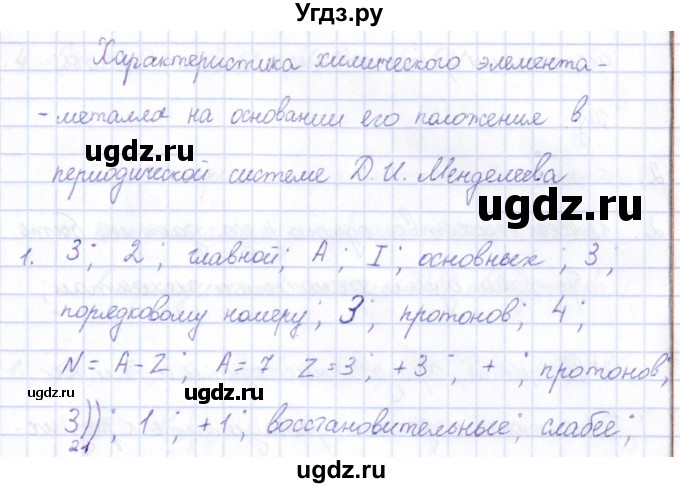 Угдз.ру
Характеристика химического элемента -
- металла на основании его положения в
ugdz.ru
периодической системе Д.И. Менделеева
ugdz.ru
1. 3; 2; главной; А; I; основных; 3;
порядковому номеру; 3; протонов; 4;
ugdz.ru
N = A - Z; A = 7 Z = 3; +3; +; протонов;
ugdz.ru
3)); 1; +1; восстановительные; слабее;
21
ugdz.ru